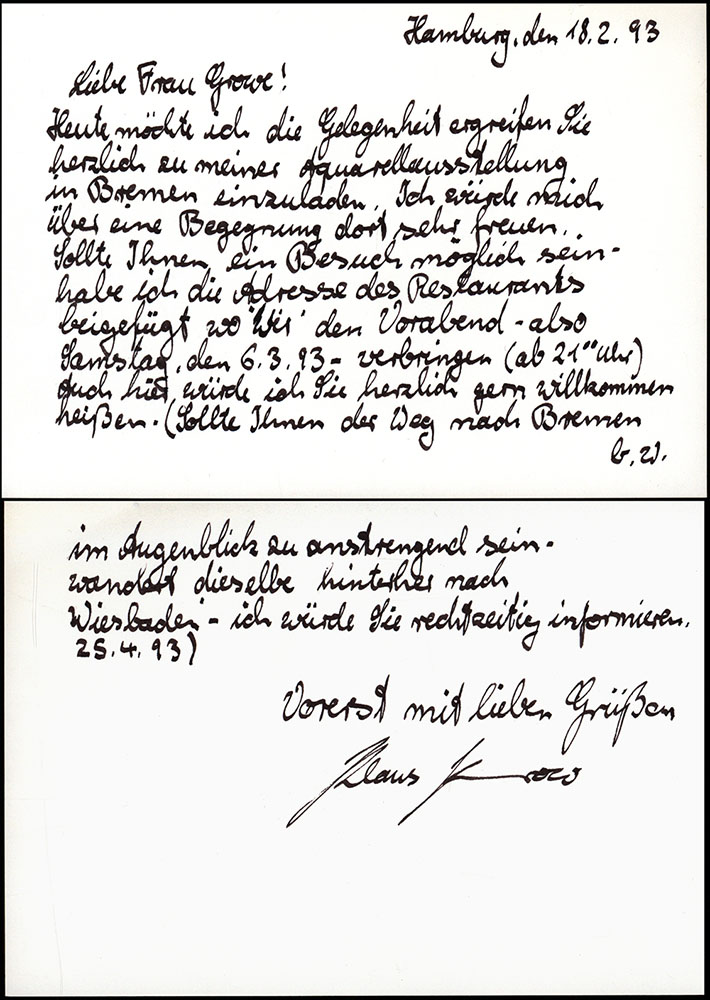 Hamburg, den 18.2.93
Liebe Frau Growe!
Heute möchte ich die Gelegenheit ergreifen Sie
herzlich zu meiner Aquarellausstellung
in Bremen einzuladen. Ich würde mich
über eine Begegnung dort sehr freuen.
Sollte Ihnen ein Besuch möglich sein -
habe ich die Adresse des Restaurants
beigefügt wo 'wir' den Vorabend - also
Samstag, den 6.3.93 - verbringen (ab 21°° Uhr)
auch hier würde ich Sie herzlich gern willkommen
heißen. (Sollte Ihnen der Weg nach Bremen
b.w.
im Augenblick zu anstrengend sein -
wandert dieselbe hinterher nach
Wiesbaden - ich würde Sie rechtzeitig informieren.
25.4.93)
Vorerst mit lieben Grüßen
Klaus